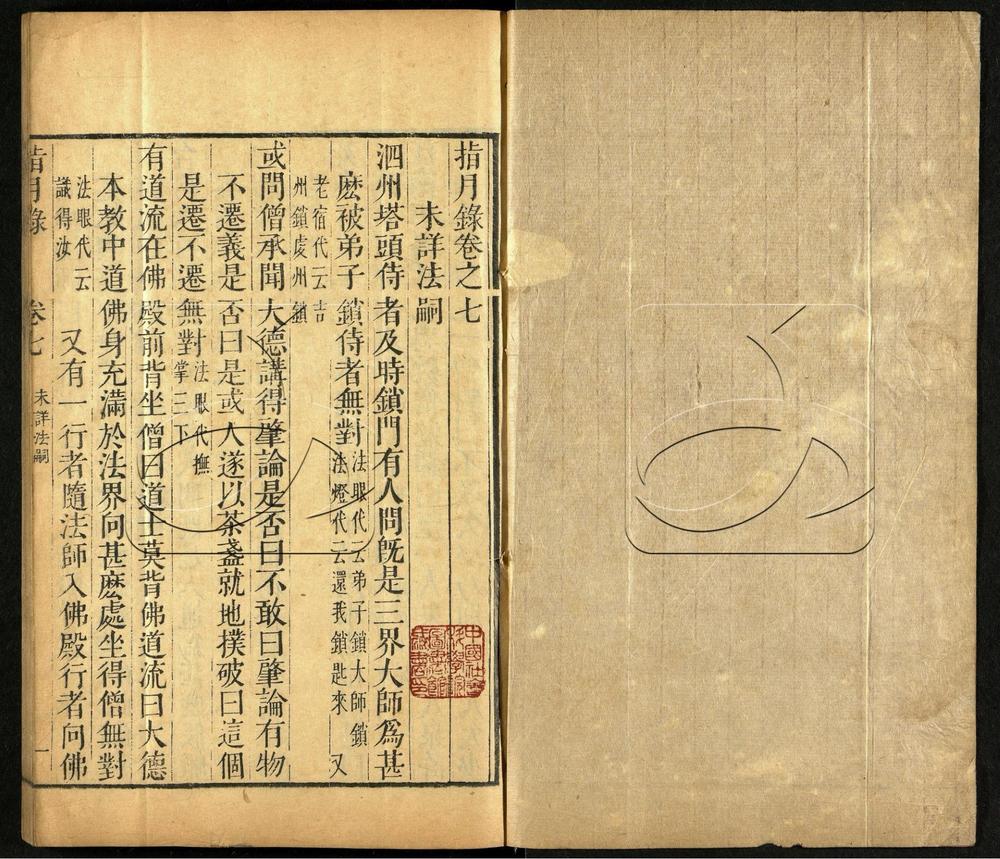 指月錄卷之七
未詳法嗣
泗州塔頭侍者及時鎖門有人問旣是三界大師爲甚
麽被弟子鎖侍者無對
法眼代云弟子鎖大師鎖
法燈代云還我鎖匙來 又
老宿代云吉
州鎖虔州鎖
或問僧承聞大德講得肇論是否曰不敢曰肇論有物
不遷義是否曰是或人遂以茶盞就地撲破曰這個
是遷不遷無對
法眼代撫
掌三下
有道流在佛殿前背坐僧曰道士莫背佛道流曰大德
本教中道佛身充滿於法界向甚麽處坐得僧無對
法眼代云
識得汝
又有一行者隨法師入佛殿行者向佛
指月錄 卷七 未詳法嗣 一